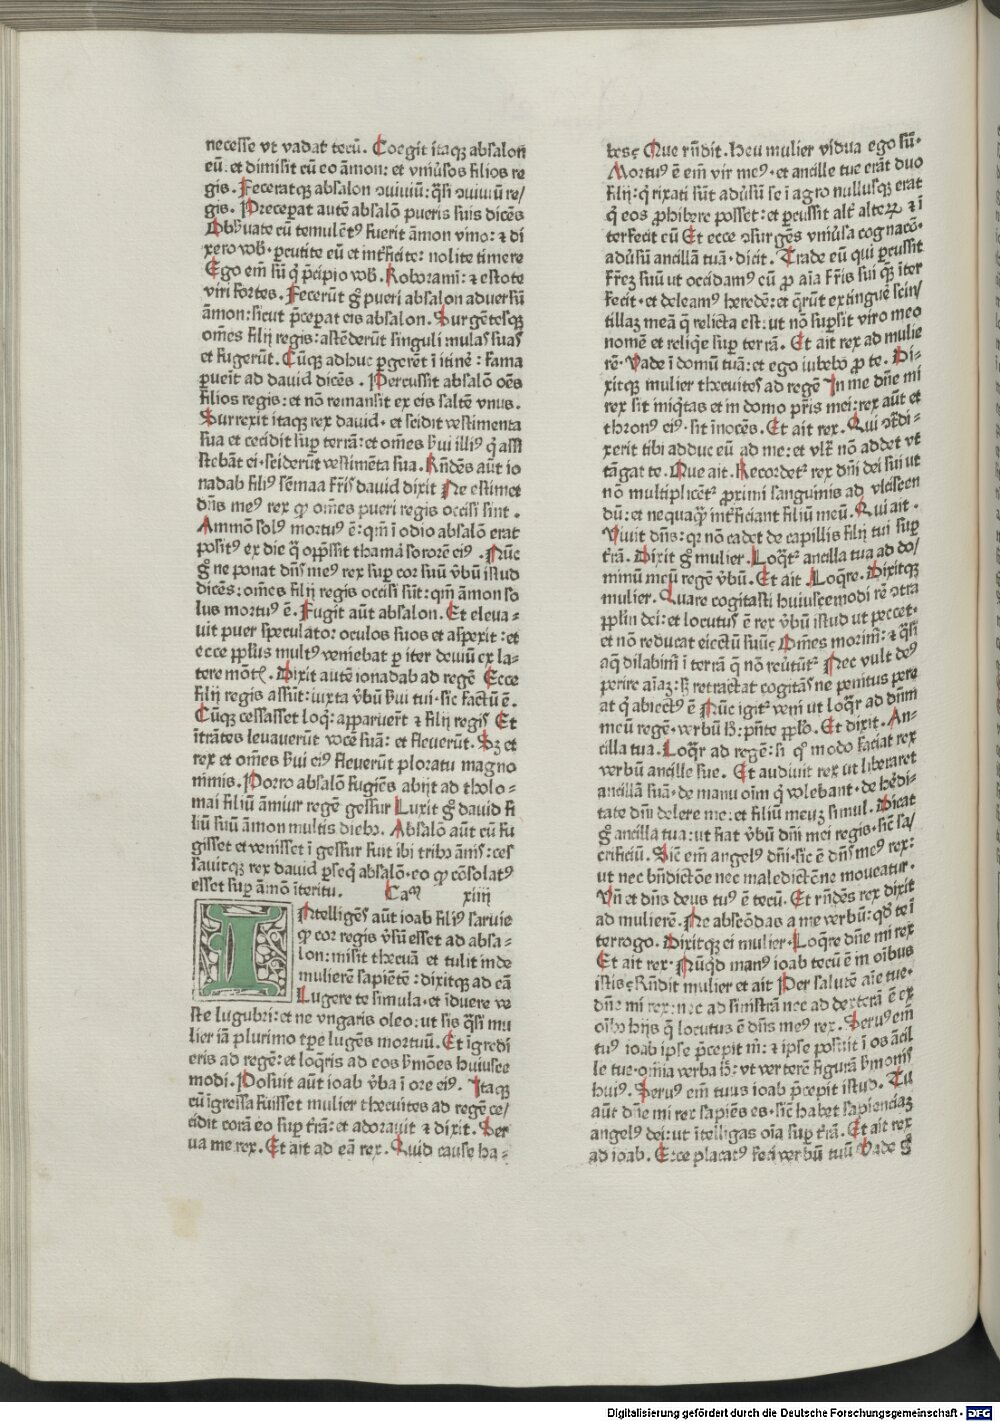 necesse vt vadat tecū. Coegit itaqꝫ absalon
eū. et dimisit cū eo āmon: et vniūsos filios re
gis. Feceratqꝫ absalon ꝯuiuiū: q̄si ꝯuiuiū re/
gis. Preceperat autē absalō pueris suis dicēs
Obẜuate cū temulēt⁹ fuerit āmon vino: ⁊ di
xero vob̵. percutite eū et int̄ficite: nolite timere
Ego em̄ sū q̄ p̄cipio vob̵. Roboramī: ⁊ estote
viri fortes. Fecerūt gͦ pueri absalon aduersū
āmon: sicut p̄ceperat eis absalon. Surgētesqꝫ
om̄es filij regis: astēderūt singuli mulas suas
et fugerūt. Cūqꝫ adhuc ꝑgerēt ī itinē: fama
ꝑueīt ad dauid dicēs. Percussit absalō oēs
filios regis: et nō remansit ex eis saltē vnus.
Surrexit itaqꝫ rex dauid. et scidit vestimenta
sua et cecidit suꝑ terrā: et om̄es ẜui illi⁹ q̄ assi
stebāt ei. sciderūt vestimēta sua. Rn̄dēs aūt io
nadab fili⁹ sēmaa fr̄is dauid dixit Ne estimet
dn̄s me⁹ rex ꝙ om̄es pueri regis occisi sint.
Ammō sol⁹ mortu⁹ ē: qm̄ ī odio absalō erat
posit⁹ ex die q̄ opp̄ssit thamā sororē ei⁹. Nūc
gͦ ne ponat dn̄s me⁹ rex suꝑ cor suū v̄bū istud
dicēs: om̄es filij regis occisi sūt: qm̄ āmon so
lus mortu⁹ ē. Fugit aūt absalon. Et eleua-
uit puer speculator oculos suos et aspexit: et
ecce pp̄lus mult⁹ veniebat ꝑ iter deuiū ex la-
tere mōt{. Dixit autē ionadab ad regē Ecce
filij regis assūt: iuxta v̄bū ẜui tui. sic factū ē.
Cūqꝫ cessasset loq̄: apparuer̄t ⁊ filij regis Et
ītrātes leuauerūt vocē suā: et fleuerūt. Sꝫ et
rex et om̄es ẜui ei⁹ fleuerūt ploratu magno
nimis. Porro absalō fugiēs abijt ad tholo-
mai filiū āmiur regē gessur Luxit gͦ dauid fi
liū suū āmon multis dieb̵. Absalō aūt cū fu
gisset et venisset ī gessur fuit ibi trib̵ ānis: ces
sauitqꝫ rex dauid ꝑseq̄ absalō. eo ꝙ cōsolat⁹
esset suꝑ āmō īteritu. Cam xiiij
INtelligēs aūt ioab fili⁹ saruie
ꝙ cor regis v̄sū esset ad absa-
lon: misit thecuā et tulit inde
mulierē sapiētē: dixitqꝫ ad eā
Lugere te simula. et īduere ve
ste lugubri: et ne vngaris oleo: ut sis q̄si mu
lier iā plurimo tꝑe lugēs mortuū. Et īgredi
eris ad regē: et loq̄ris ad eos ẜmōes huiusce
modi. Posuit aūt ioab v̄ba ī ore ei⁹. Itaqꝫ
cū īgressa fuisset mulier thecuites ad regē ce/
cidit corā eo suꝑ t̄rā: et adorauit ⁊ dixit. Ser
ua me rex. Et ait ad eā rex. Quid cause ha-
bes: Que rn̄dit. Heu mulier vidua ego sū.
Mortu⁹ ē em̄ vir me⁹. et ancille tue erāt duo
filij: q̄ rixati sūt adūsū se ī agro nullusqꝫ erat
q̄ eos ꝓhibere posset: et ꝑcussit alt̄ alteꝝ ⁊ ī
terfecit eū Et ecce ꝯsurgēs vniūsa cognacō.
adūsū ancillā tuā. dicit. Trade eū qui ꝑcussit
fr̄eꝫ suū ut occidam⁹ cū ꝓ aīa fr̄is sui qꝫ īter
fecit. et deleam⁹ heredē: et q̄rūt extinguē scin/
tillaꝫ meā q̄ relicta est: ut nō suꝑsit viro meo
nomē et reliqe suꝑ terrā. Et ait rex ad mulie
rē. Vade ī domū tuā: et ego iubebo ꝓ te. Di-
xitqꝫ mulier thecuites ad regē In me dn̄e mi
rex sit miq̄tas et in domo pr̄is mei: rex aūt et
thron⁹ ei⁹. sit īnocēs. Et ait rex. Qui ꝯt̄di-
xerit tibi adduc eū ad me: et vlt̄ nō addet vt
tāgat te. Que ait. Recordet̄ rex dn̄i dei sui ut
nō multiplicēt̄ ꝓximi sanguinis ad vlciscen
dū: et nequaq̄ int̄ficiant filiū meū. Qui ait.
Viuit dn̄s: qꝛ nō cadet de capillis filij tui suꝑ
t̄rā. Dixit gͦ mulier. Loq̄t̄ ancilla tua ad do/
minū meū regē v̄bū. Et ait. Loq̄re. Dixitqꝫ
mulier. Quare cogitasti huiuscemodi rē ꝯtra
pp̄lm dei: et locutus ē rex v̄bū istud ut peccet.
et nō reducat eiectū suū: Om̄es morim̄: ⁊ q̄si
aq̄ dilabim̄ ī terrā q̄ nō reūtūt̄ Nec vult de⁹
perire aīaꝫ: sꝫ retractat cogitās ne penitus pere
at q̄ abiect⁹ ē Nūc igit̄ veni ut loq̄r ad dn̄m
meū regē. verbū h̄: p̄nte pp̄lo. Et dixit. An-
cilla tua. Loq̄r ad regē: si q̊ modo faciat rex
verbū ancille sue. Et audiuit rex ut liberaret
ancillā suā. de manu oīm q̄ volebant. de h̄edi-
tate dn̄i delere me: et filiū meuꝫ simul. Dicat
gͦ ancilla tua: ut fiat v̄bū dn̄i mei regis. sic̄ sa/
crificiū. Sic̄ em̄ angel⁹ dn̄i. sic ē dn̄s me⁹ rex:
ut nec bn̄dictōe nec maledictōe moueatur.
Vn̄ et dn̄s deus tu⁹ ē tecū. Et rn̄dēs rex dixit
ad mulierē. Ne abscōdas a me verbū: qd̄ te ī
terrogo. Dixitqꝫ ei mulier. Loq̄re dn̄e mi rex
Et ait rex. Nūqd man⁹ ioab tecū ē in oībus
istis: Rn̄dit mulier et ait Per salutē aīe tue.
dn̄e mi rex: nec ad sinistrā nec ad dexterā ē ex
oīb̵ hijs q̄ locutus ē dn̄s me⁹ rex. Seru⁹ em̄
tu⁹ ioab ipse p̄cepit m̄: ⁊ ipse posuit ī os ācil
le tue. omīa verba h̄: ut verterē figurā ẜmonis
hui⁹. Seru⁹ em̄ tuus ioab p̄cepit istud. Tu
aūt dn̄e mi rex sapiēs es. sic̄ habet sapienciaꝫ
angel⁹ dei: ut ītelligas oīa suꝑ t̄rā. Et ait rex
ad ioab. Ecce placat⁹ feci verbū tuū Vade gͦ
Digitalisierung gefördert durch die Deutsche Forschungsgemeinschaft - DFG